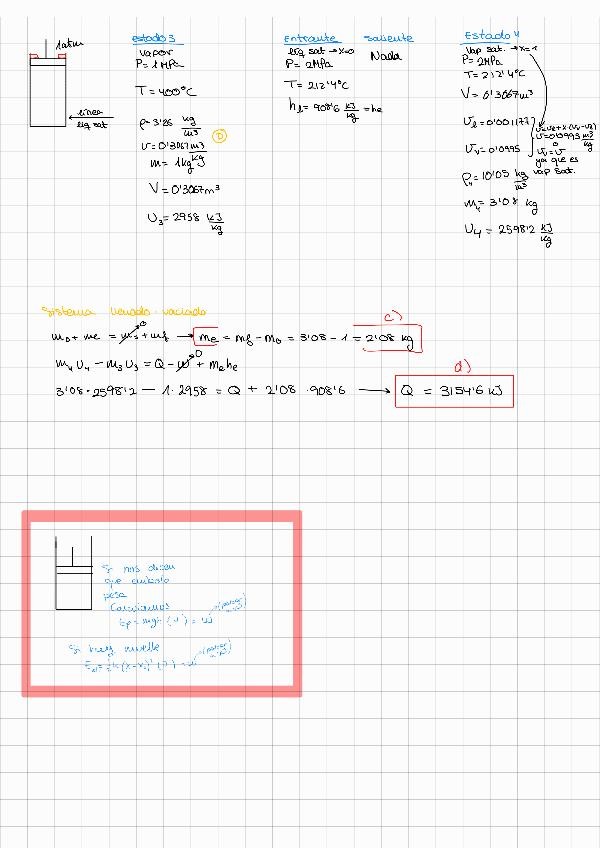 1atm
línea
liq sat
estado 3
vapor
P = 1 MPa
T = 400°C
ρ = 3'26 kg/m³
v = 0'3067 m³/kg
m = 1 kg
V = 0'3067 m³
U₃ = 2958 kJ/kg
Entrante
liq sat → x=0
P = 2MPa
T = 212'4°C
hₗ = 908'6 kJ/kg = he
saliente
Nada
Estado 4
Vap sat. → x=1
P = 2MPa
T = 212'4°C
V = 0'3067 m³
vₗ = 0'001177
vᵥ = 0'0995
v = vₗ + x·(vᵥ - vₗ)
v = 0'0995 m³/kg
vᵥ = v
ya que es
vap sat.
ρ₄ = 10'05 kg/m³
m₄ = 3'08 kg
U₄ = 2598'2 kJ/kg
Sistema
variado
c)
m₀ + me = ms⁰ + mf → me = mf - m₀ = 3'08 - 1 = 2'08 kg
m₄U₄ - m₃U₃ = Q - W⁰ + me he
d)
3'08 · 2598'2 - 1 · 2958 = Q + 2'08 · 908'6 → Q = 3154'6 kJ
Si nos dicen
que émbolo
pesa
Calculamos
Ep = mgh (-1) = W
Si hay muelle